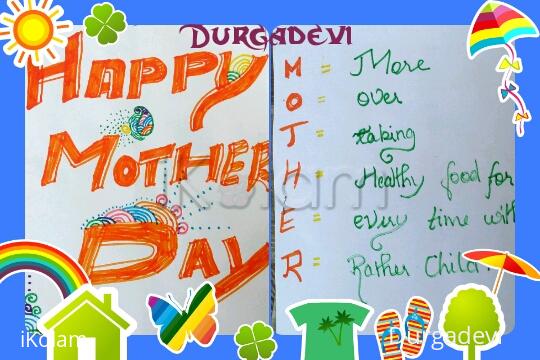 DURGADEVI
HAPPY
MOTHER
DAY
M = More
O = over
T = taking
H = Healthy food for
E = every time with
R = Rather Child
iKolam
iKolam
Durgadevi